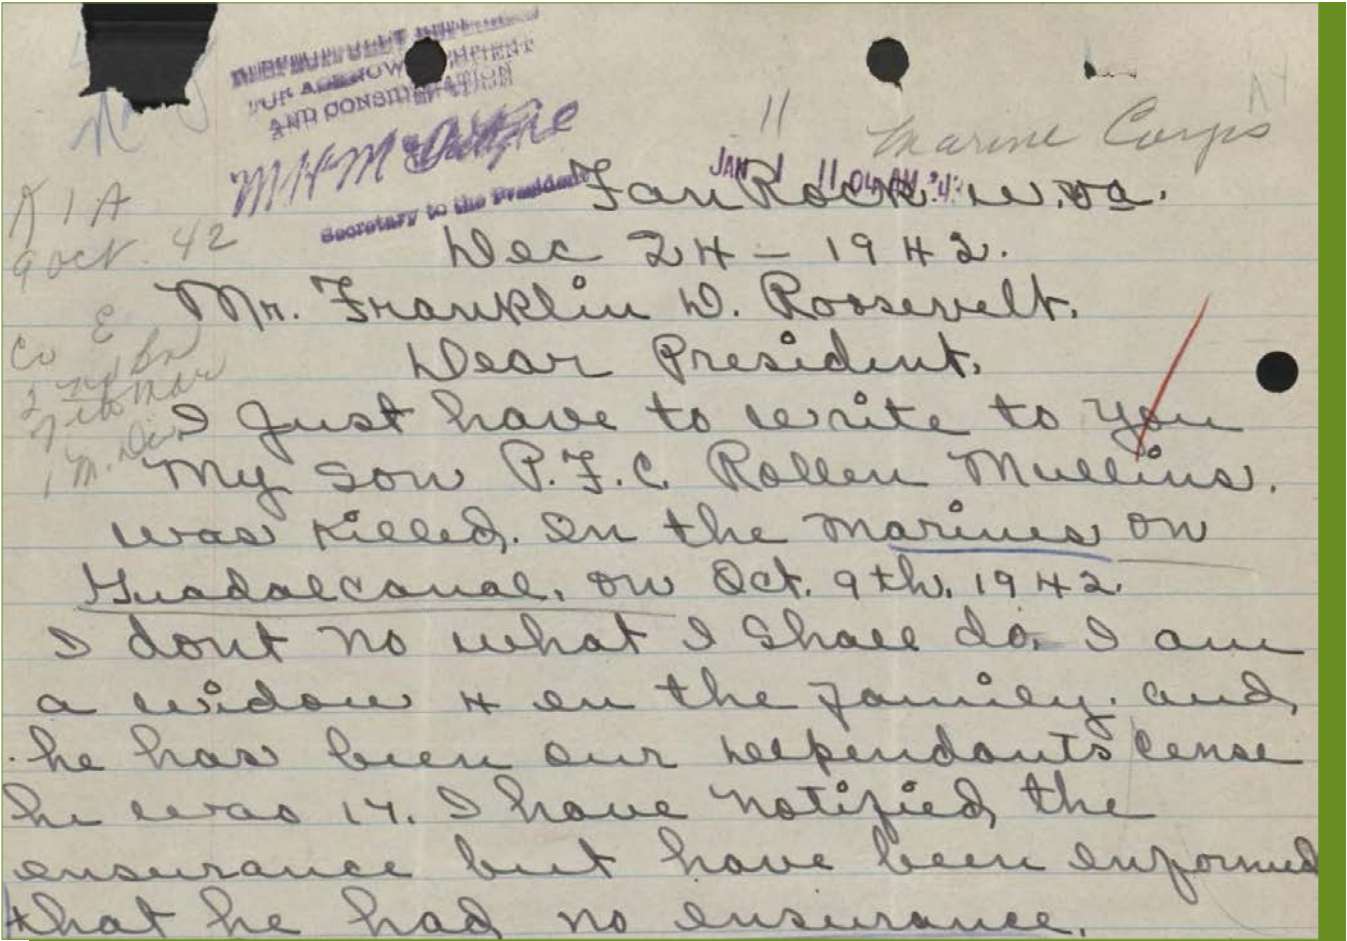 Navy
RESPECTFULLY REFERRED
FOR ACKNOWLEDGMENT
AND CONSIDERATION
M H McIntyre
Secretary to the President
11
Marine Corps
JAN 1 11 04 AM '43
Fan Rock. W. va.
Dec 24 – 1942.
KIA
9 Oct. 42
Mr. Franklin D. Roosevelt.
Dear President.
Co E
2nd Bn
7th Mar
1 M. Div
I Just have to write to you
My son P.F.C. Rollen Mullins.
was Killed. In the marines on
Guadalcanal. on Oct. 9th. 1942.
I dont no what I Shall do. I am
a widow 4 en the family. and
he has been our Dependants cense
he was 17. I have notified the
ensurance but have been enformed
that he had no ensurance.